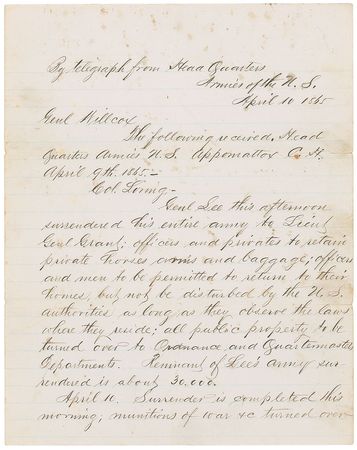 By telegraph from Head Quarters
Armies of the U.S.
April 10 1865
Genl Willcox
The following received. Head
Quarters Armies U.S. Appomattox C.H.
April 9th 1865.-
Col. Loring-
Genl Lee this afternoon
surrendered his entire army to Lieut
Genl Grant; officers and privates to retain
private horses arms and baggage; officers
and men to be permitted to return to their
homes, but not be disturbed by the U.S.
authorities as long as they observe the laws
where they reside; all public property to be
turned over to Ordnance and Quartermasters
Departments. Remnant of Lee's army sur-
rendered is about 30.000.
April 10. Surrender is completed this
morning; munitions of war &c turned over